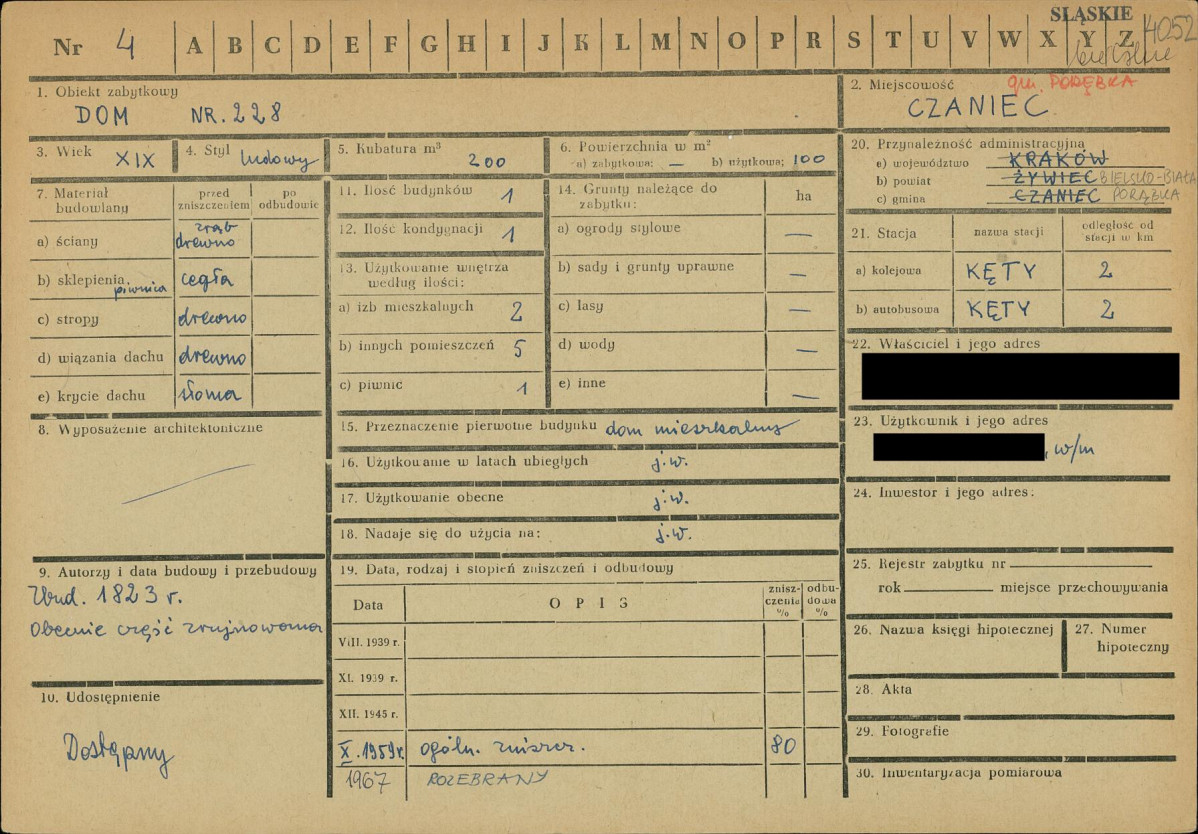 ŚLĄSKIE
4052
Nr 4 A B C D E F G H I J K L M N O P R S T U V W X Y Z
bielskie
1. Obiekt zabytkowy
DOM NR. 228
2. Miejscowość gm. PORĘBKA
CZANIEC
3. Wiek XIX
4. Styl ludowy
5. Kubatura m³ 200
6. Powierzchnia w m²
a) zabytkowa: — b) użytkowa: 100
20. Przynależność administracyjna
a) województwo KRAKÓW
b) powiat ŻYWIEC BIELSKO-BIAŁA
c) gmina CZANIEC PORĄBKA
7. Materiał budowlany
przed zniszczeniem
po odbudowie
a) ściany zrąb drewno
b) sklepienia, piwnica cegła
c) stropy drewno
d) wiązania dachu drewno
e) krycie dachu słoma
11. Ilość budynków 1
12. Ilość kondygnacji 1
13. Użytkowanie wnętrza
według ilości:
a) izb mieszkalnych 2
b) innych pomieszczeń 5
c) piwnic 1
14. Grunty należące do
zabytku: ha
a) ogrody stylowe —
b) sady i grunty uprawne —
c) lasy —
d) wody —
e) inne —
21. Stacja nazwa stacji odległość od stacji w km
a) kolejowa KĘTY 2
b) autobusowa KĘTY 2
22. Właściciel i jego adres
23. Użytkownik i jego adres
, w/m
24. Inwestor i jego adres:
8. Wyposażenie architektoniczne
15. Przeznaczenie pierwotne budynku dom mieszkalny
16. Użytkowanie w latach ubiegłych j.w.
17. Użytkowanie obecne j.w.
18. Nadaje się do użycia na: j.w.
9. Autorzy i data budowy i przebudowy
Zbud. 1823 r.
Obecnie część zrujnowana
10. Udostępnienie
Dostępny
19. Data, rodzaj i stopień zniszczeń i odbudowy
Data OPIS znisz-czenia % odbu-dowa %
VIII. 1939 r.
XI. 1939 r.
XII. 1945 r.
X. 1959r. ogóln. zniszcz. 80
1967 ROZEBRANY
25. Rejestr zabytku nr
rok miejsce przechowywania
26. Nazwa księgi hipotecznej
27. Numer
hipoteczny
28. Akta
29. Fotografie
30. Inwentaryzacja pomiarowa